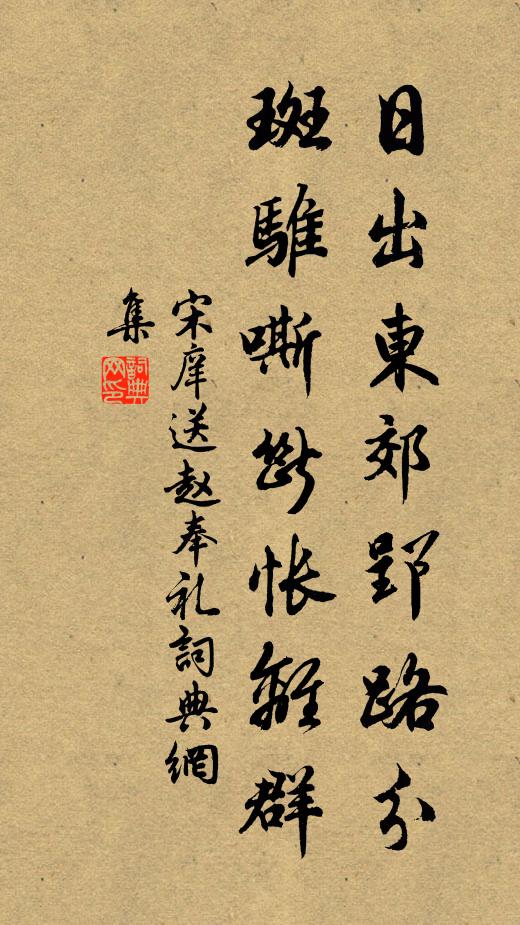 日出東郊郢路分
斑騅嘶斷悵離群
宋庠送赵奉礼詞典網
集
詞典
网印